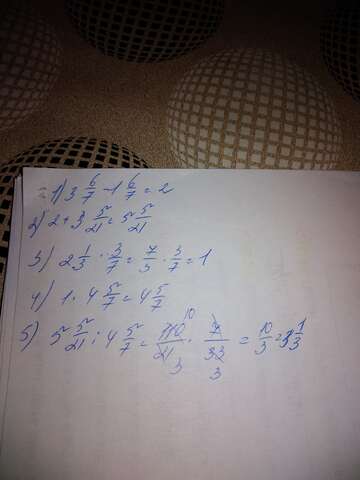 1) 3 6/7 - 1 6/7 = 2
2) 2 + 3 5/21 = 5 5/21
3) 2 1/3 · 3/7 = 7/3 · 3/7 = 1
4) 1 · 4 5/7 = 4 5/7
5) 5 5/21 : 4 5/7 = 110/21 · 7/33 = 10/3 = 3 1/3
10
3 3